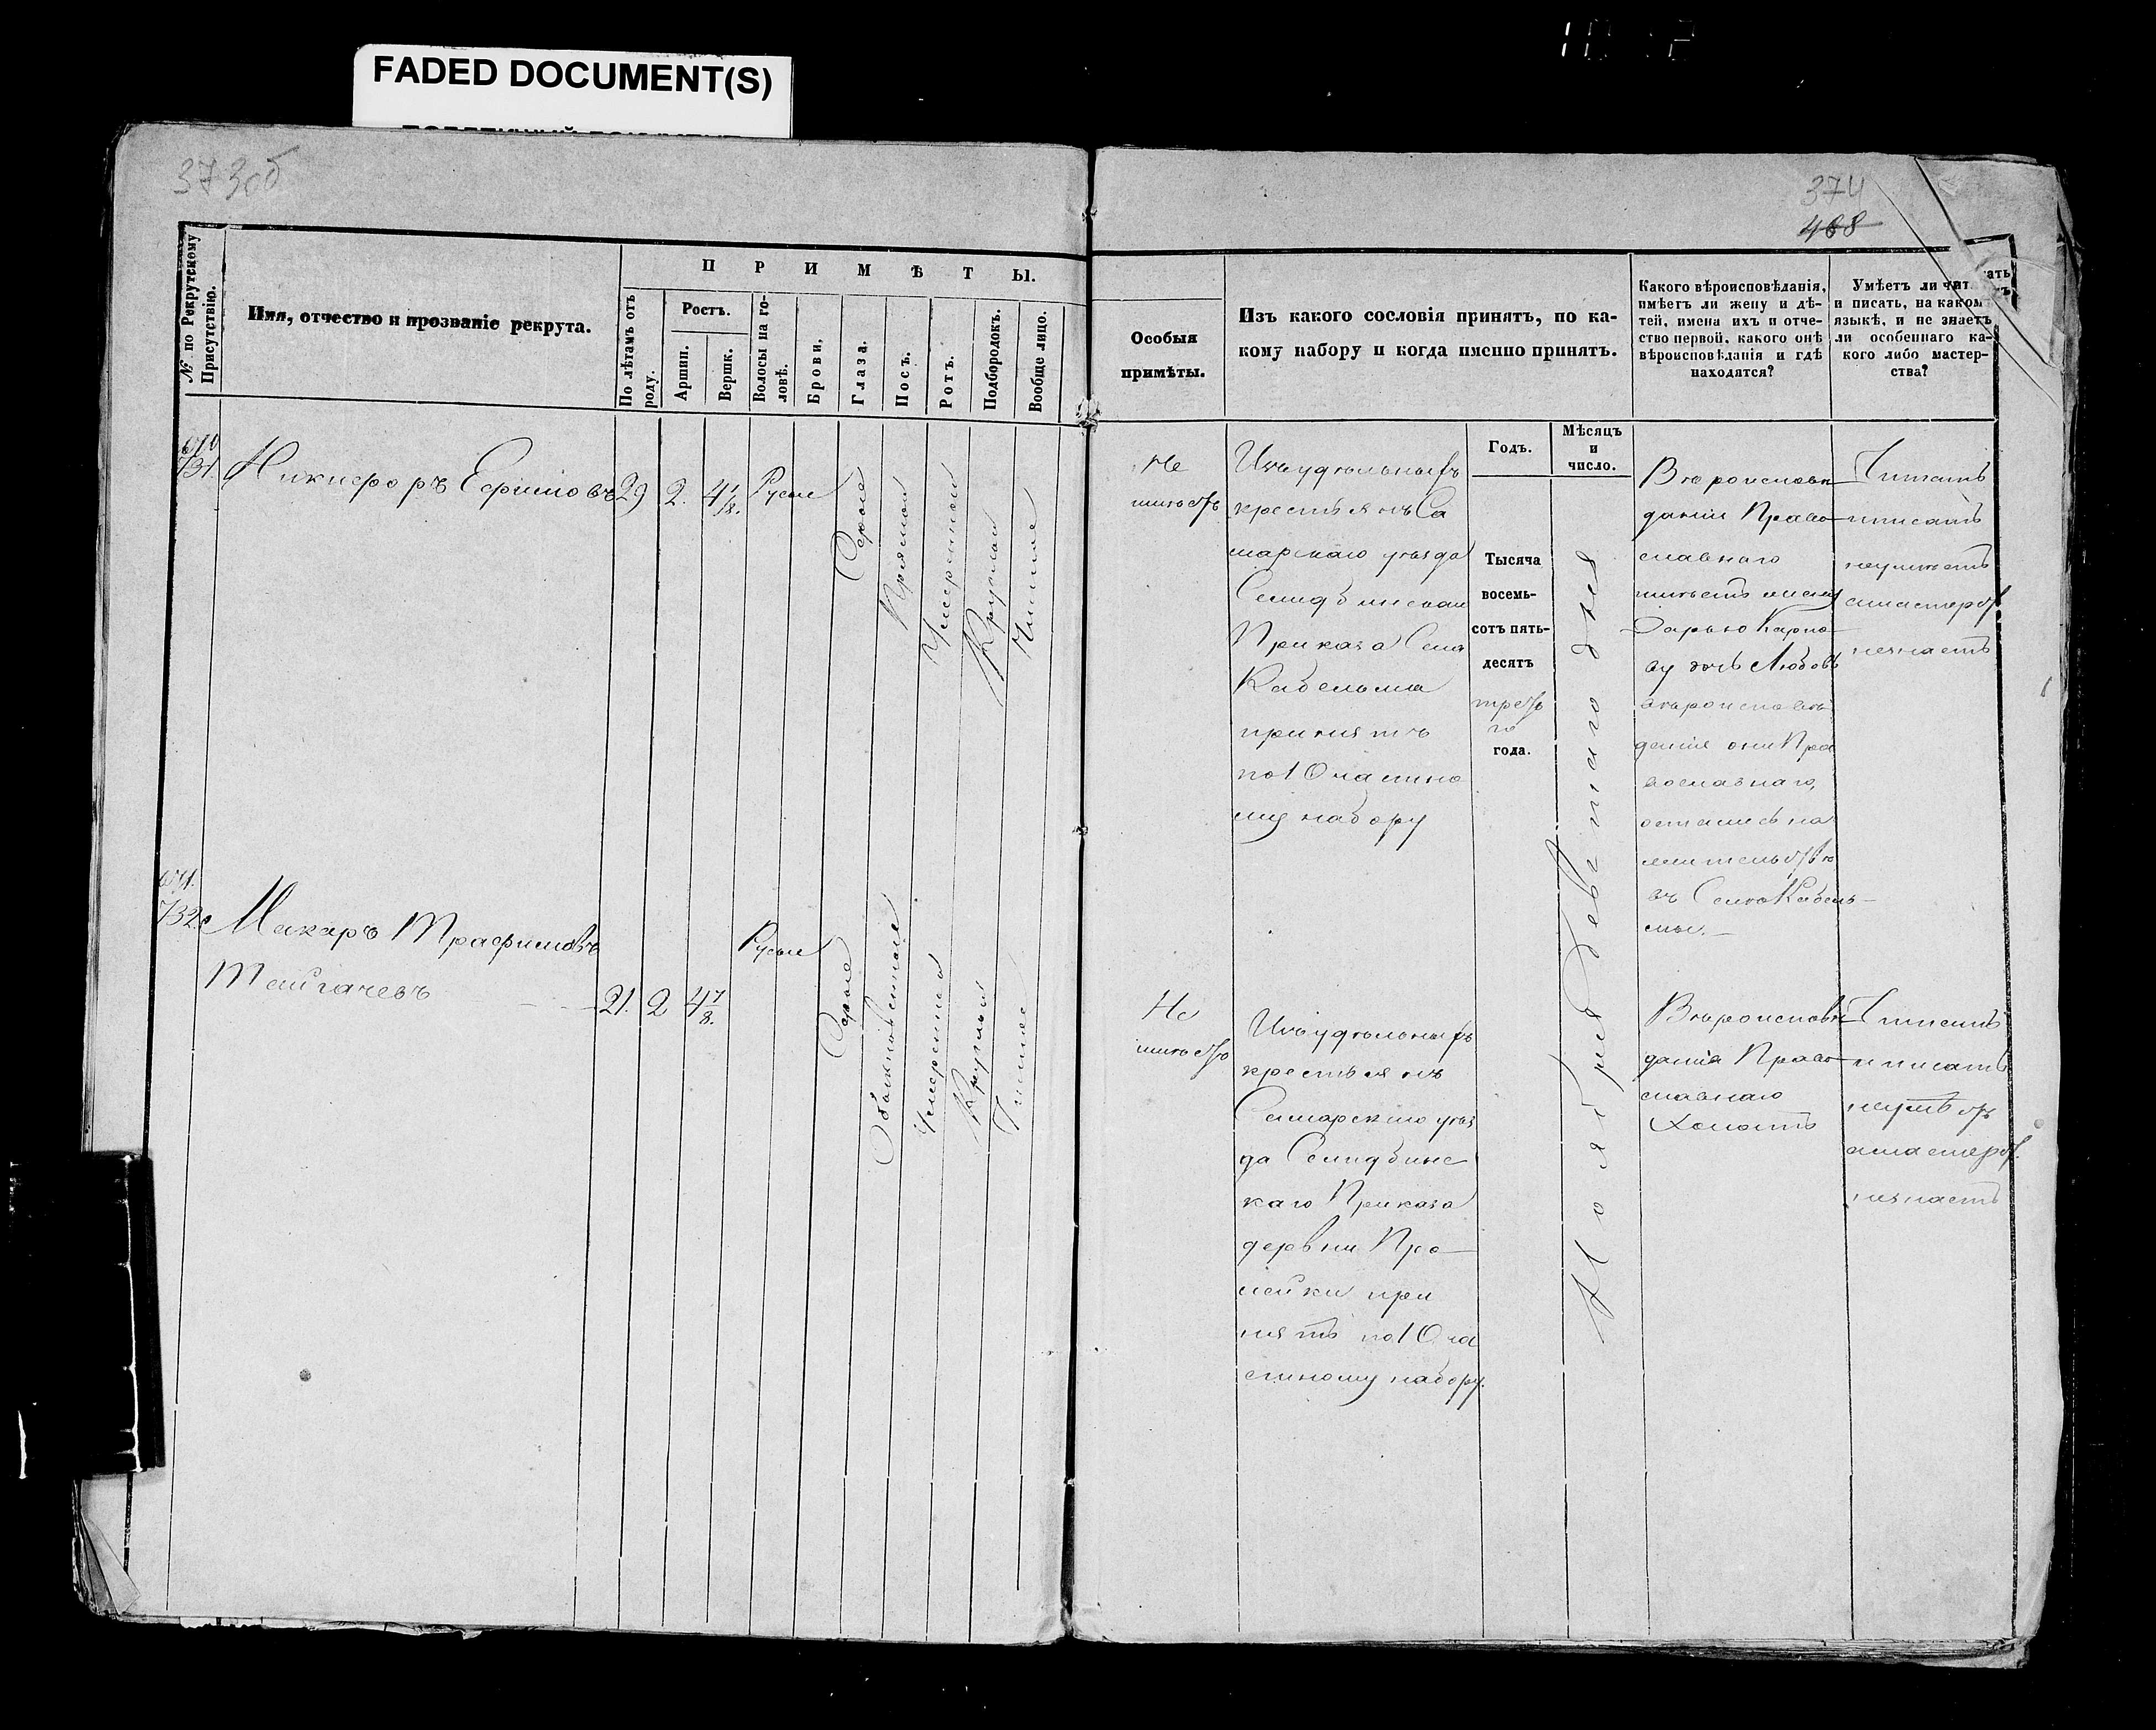 FADED DOCUMENT(S)
373об
374
468
№ по Рекрутскому Присутствію.
Имя, отчество и прозваніе рекрута.
ПРИМѢТЫ.
По лѣтамъ отъ роду.
Ростъ.
Аршин.
Вершк.
Волосы на головѣ.
Брови.
Глаза.
Носъ.
Ротъ.
Подбородокъ.
Вообще лицо.
Особыя
примѣты.
Изъ какого сословія принятъ, по ка-
кому набору и когда именно принятъ.
Какого вѣроисповѣданія,
имѣетъ ли жену и дѣ-
тей, имена ихъ и отче-
ство первой, какого онѣ
вѣроисповѣданія и гдѣ
находятся?
Умѣетъ ли чит
и писать, на каком
языкѣ, и не знаетъ
ли особеннаго ка-
кого либо мастер-
ства?
Годъ.
Мѣсяцъ
и
число.
731.
Никифоръ Ефимовъ 29 2. 4 1/8. Русые
Серые
Прямой
Умеренный
Круглый
Чистое
Не
имѣетъ
Изъ удѣльныхъ
крестьянъ Са
марскаго уѣзда
Приказа Села
Кабельма
принятъ
по 10 частно
му набору
Тысяча
восемь-
сотъ пять-
десятъ
третья
го
года.
Ноября девятаго дня
Вѣроисповѣ
данія Право
славнаго
имѣетъ жену
Дарью Карпо
ву дочь Любовь
вѣроисповѣ
данія они Пра
вославнаго,
остались на
жительствѣ
въ Селѣ Кабель
мы.
Читать
писать
неумѣетъ
и мастерст
незнаетъ
732.
Макаръ Трафимовъ
Тайгачевъ 21. 2 4 7/8.
Русые
Серые
Обыкновенные
Умеренный
Круглый
Чистое
Не
имѣетъ
Изъ удѣльныхъ
крестьянъ
Самарскаго уѣз
да
каго Приказа
деревни Про
лейки при
нятъ по 10 ча
стному набору.
Вѣроисповѣ
данія Право
славнаго
Холостъ
Читать
и писать
неумѣетъ
а мастерст.
незнаетъ